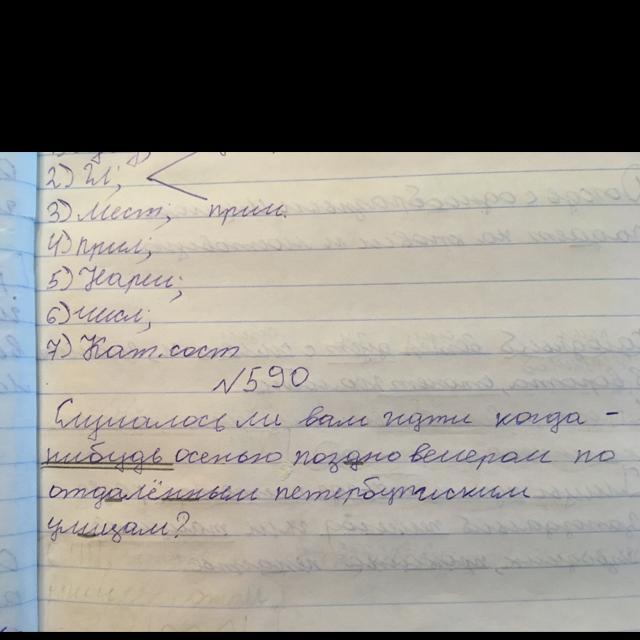 2) Гл;
3) Мест; прич.
4) прил;
5) Нареч;
6) числ;
7) Кат. сост
№590
Случалось ли вам идти когда-
нибудь осенью поздно вечером по
отдалённым петербургским
улицам?